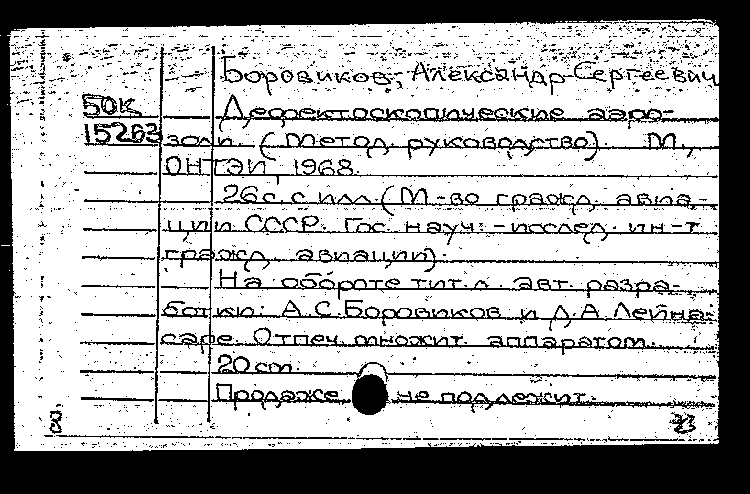 Боровиков, Александр Сергеевич
БОК Дефектоскопические аэро-
15263 золи. (Метод. руководство). М.,
ОНТЭИ, 1968.
26 с. с илл. (М-во гражд. авиа-
ции СССР. Гос. науч.-исслед. ин-т
гражд. авиации).
На обороте тит. л. авт. разра-
ботки: А.С. Боровиков и Д.А. Лейна-
саре. Отпеч. множит. аппаратом.
20 cm.
Продаже не подлежит.